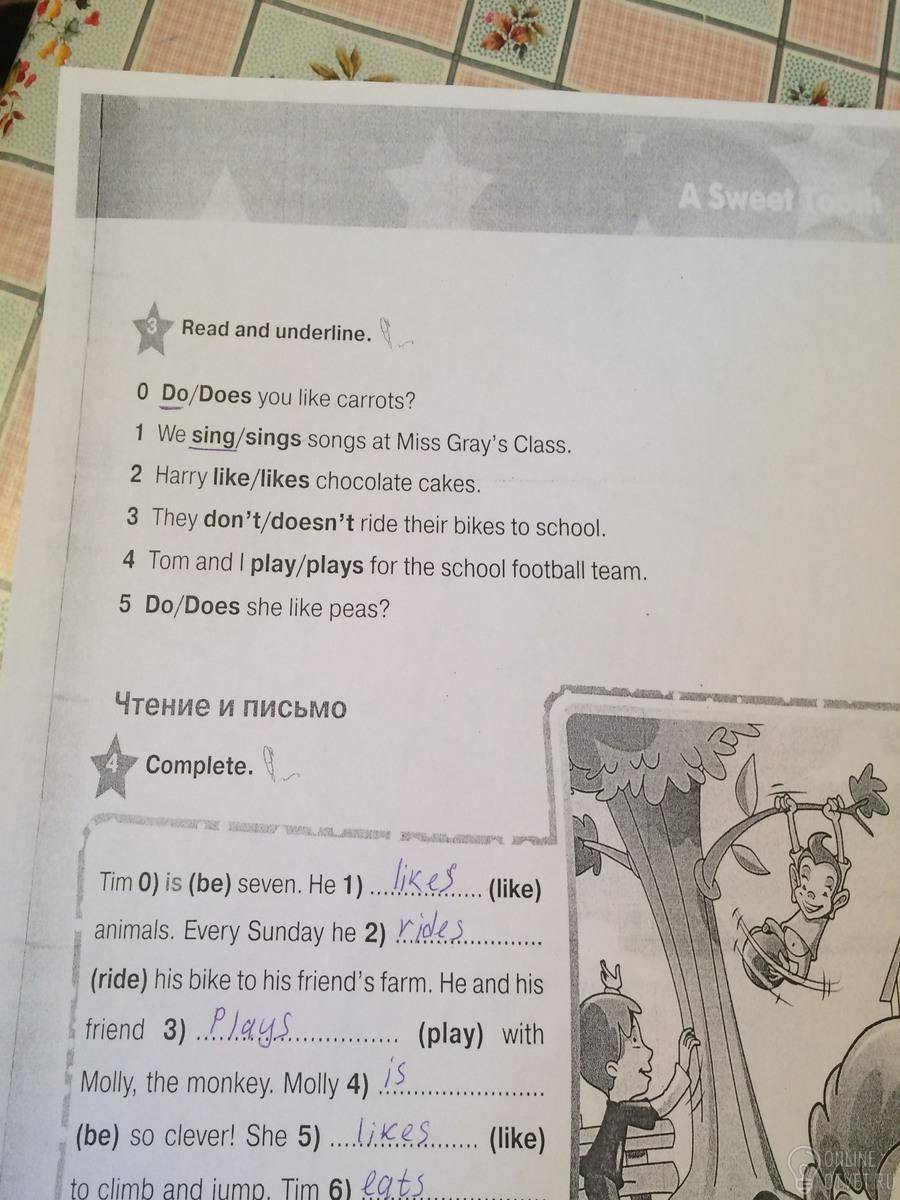 A Sweet Tooth
3 Read and underline.
0 Do/Does you like carrots?
1 We sing/sings songs at Miss Gray's Class.
2 Harry like/likes chocolate cakes.
3 They don't/doesn't ride their bikes to school.
4 Tom and I play/plays for the school football team.
5 Do/Does she like peas?
Чтение и письмо
4 Complete.
Tim 0) is (be) seven. He 1) likes (like)
animals. Every Sunday he 2) rides
(ride) his bike to his friend's farm. He and his
friend 3) Plays (play) with
Molly, the monkey. Molly 4) is
(be) so clever! She 5) likes (like)
to climb and jump. Tim 6) eats
ONLINE
OTVET.RU